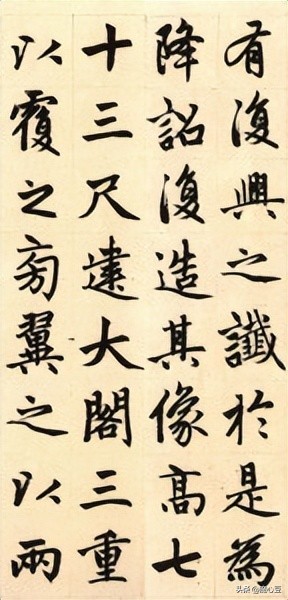 有復興之讖於是為
降詔復造其像高七
十三尺建大閣三重
以覆之旁翼之以兩
头条